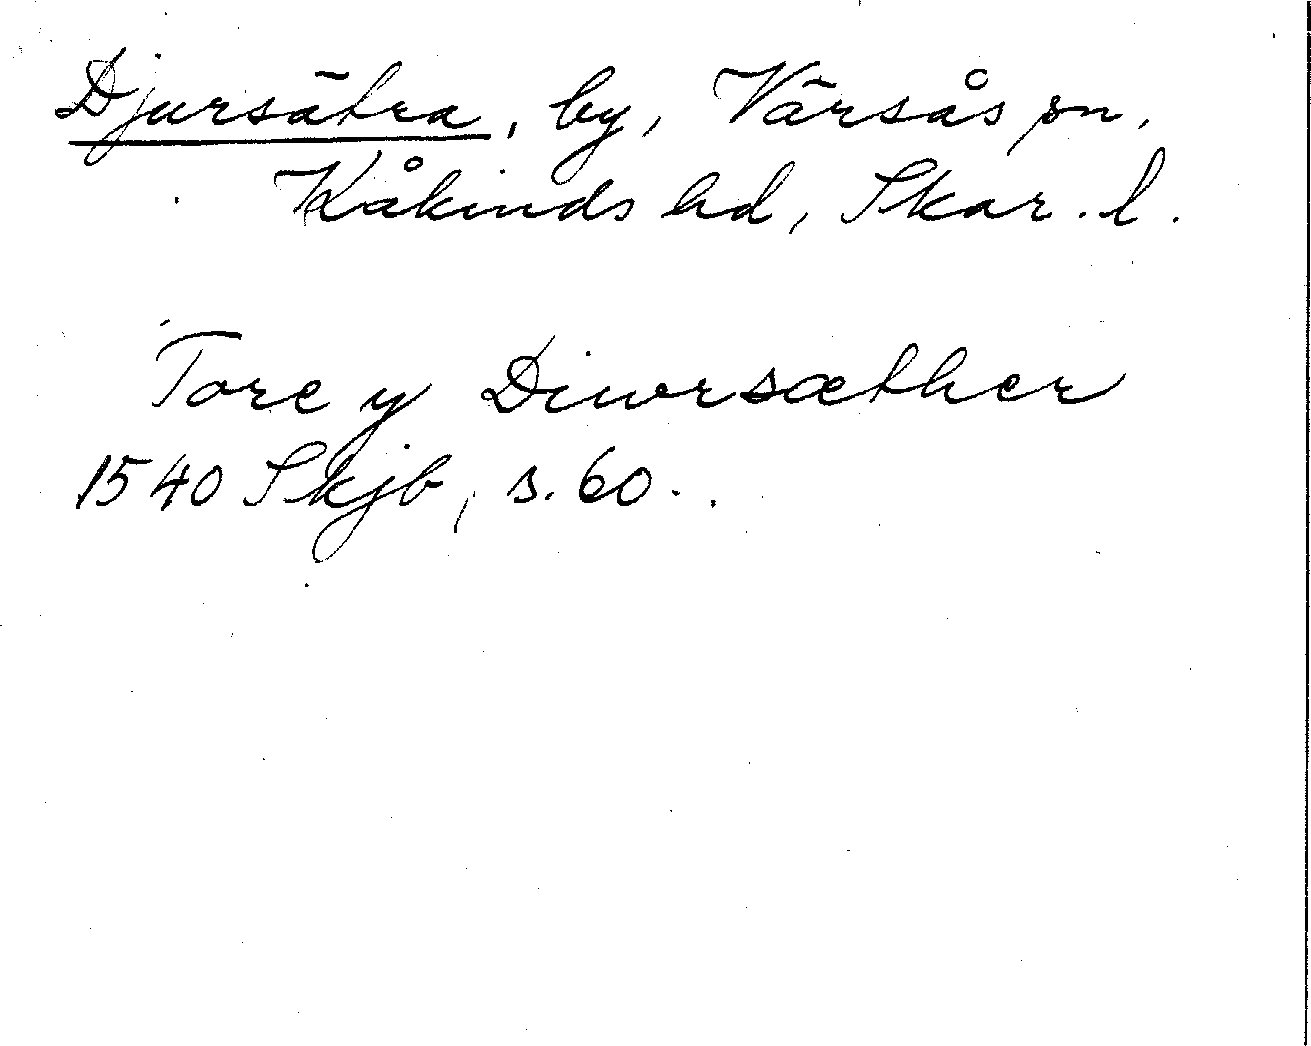 Djursätra, by, Värsås sn,
Kåkinds hd, Skar. l.
Tore y Diwrsæther
1540 Skjb, s. 60.